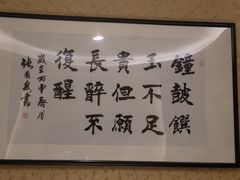 鐘鼓饌
玉不足
貴但願
長醉不
復醒
丙申
書